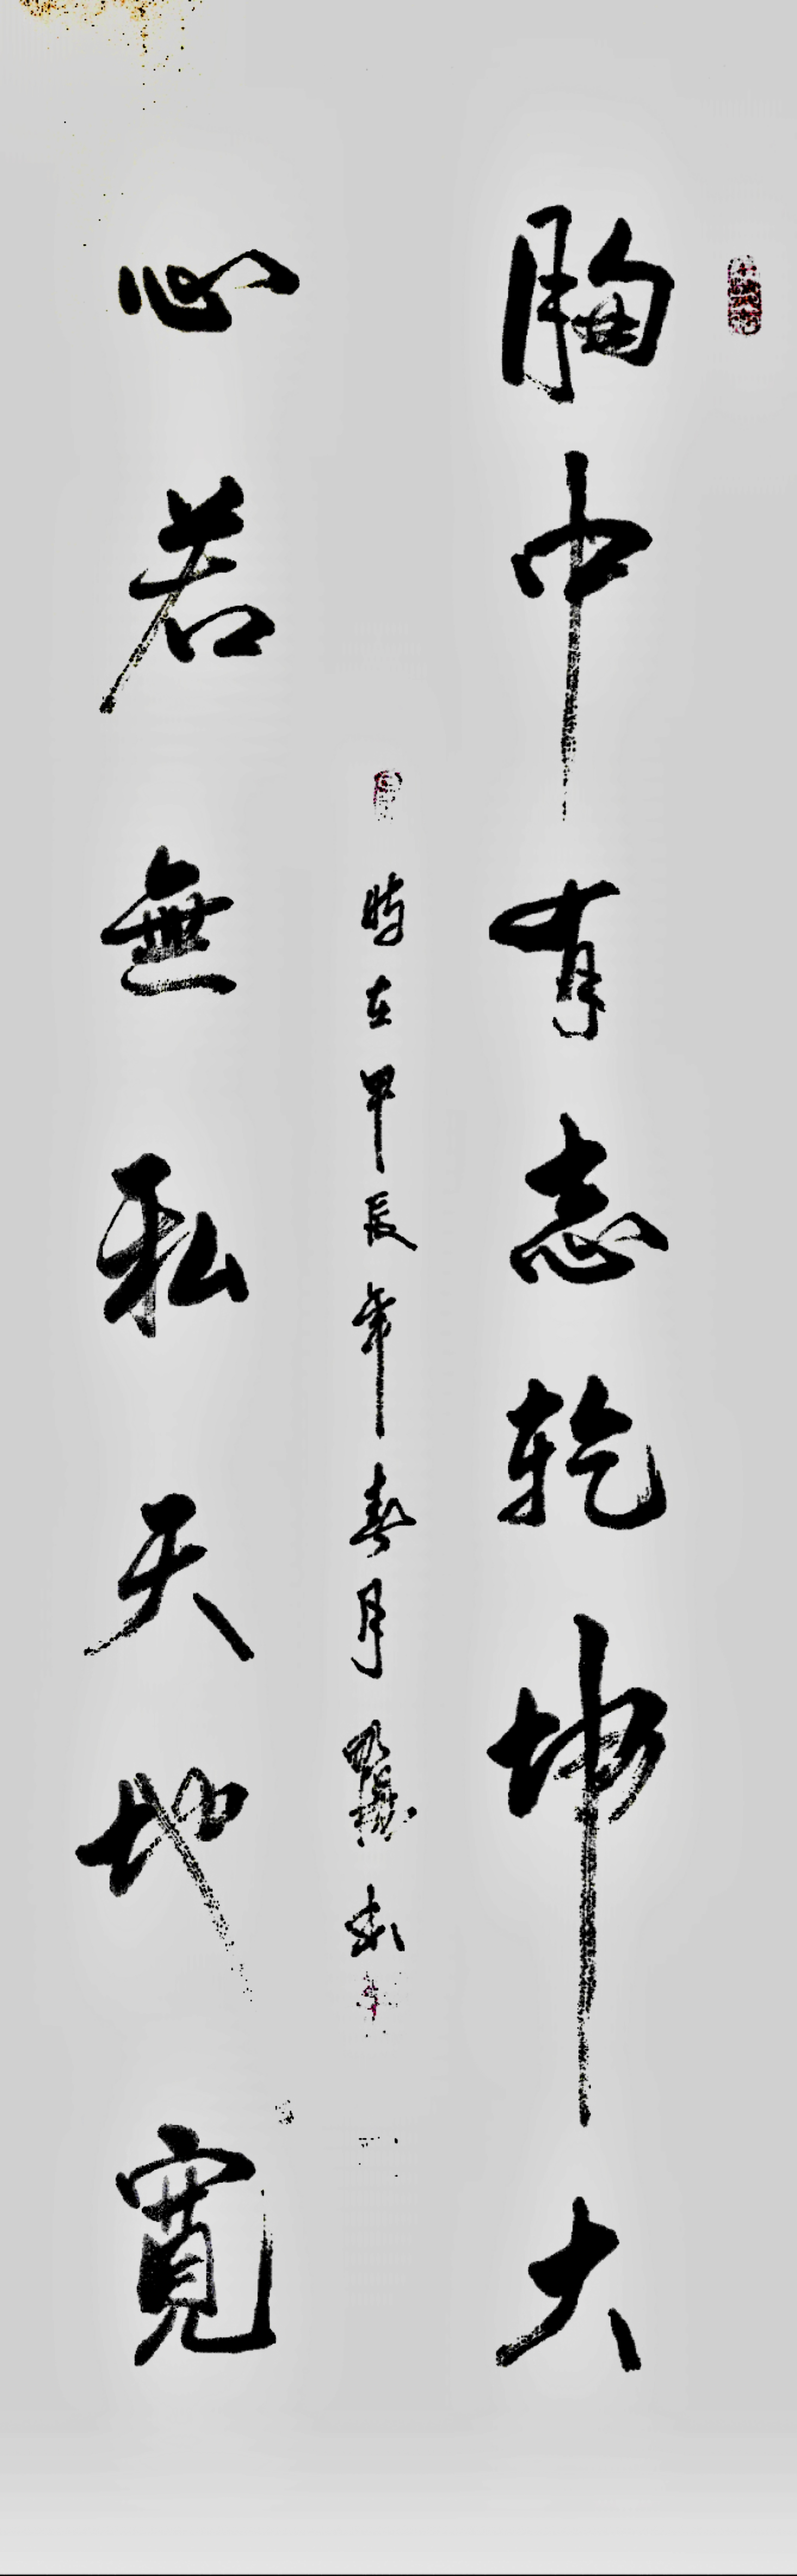 胸中有志乾坤大
心若無私天地寬
時在甲辰年春月